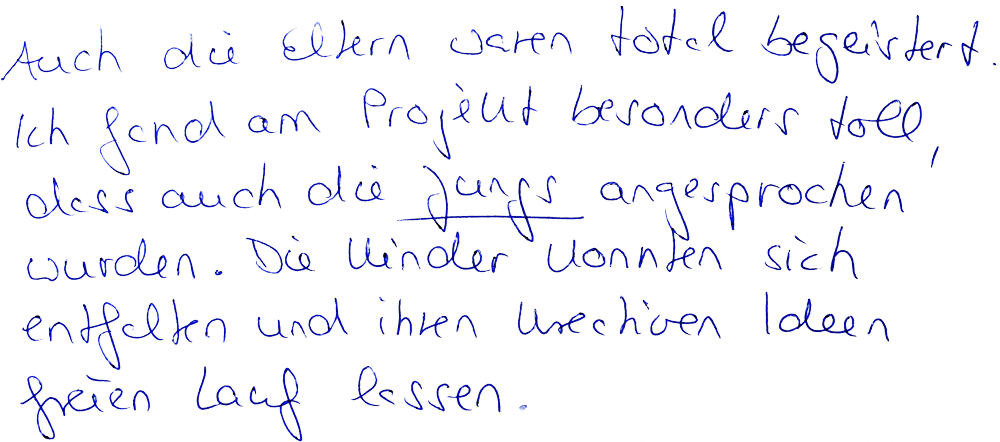 Auch die Eltern waren total begeistert.
Ich fand am Projekt besonders toll,
dass auch die Jungs angesprochen
wurden. Die Kinder konnten sich
entfalten und ihren kreativen Ideen
freien Lauf lassen.